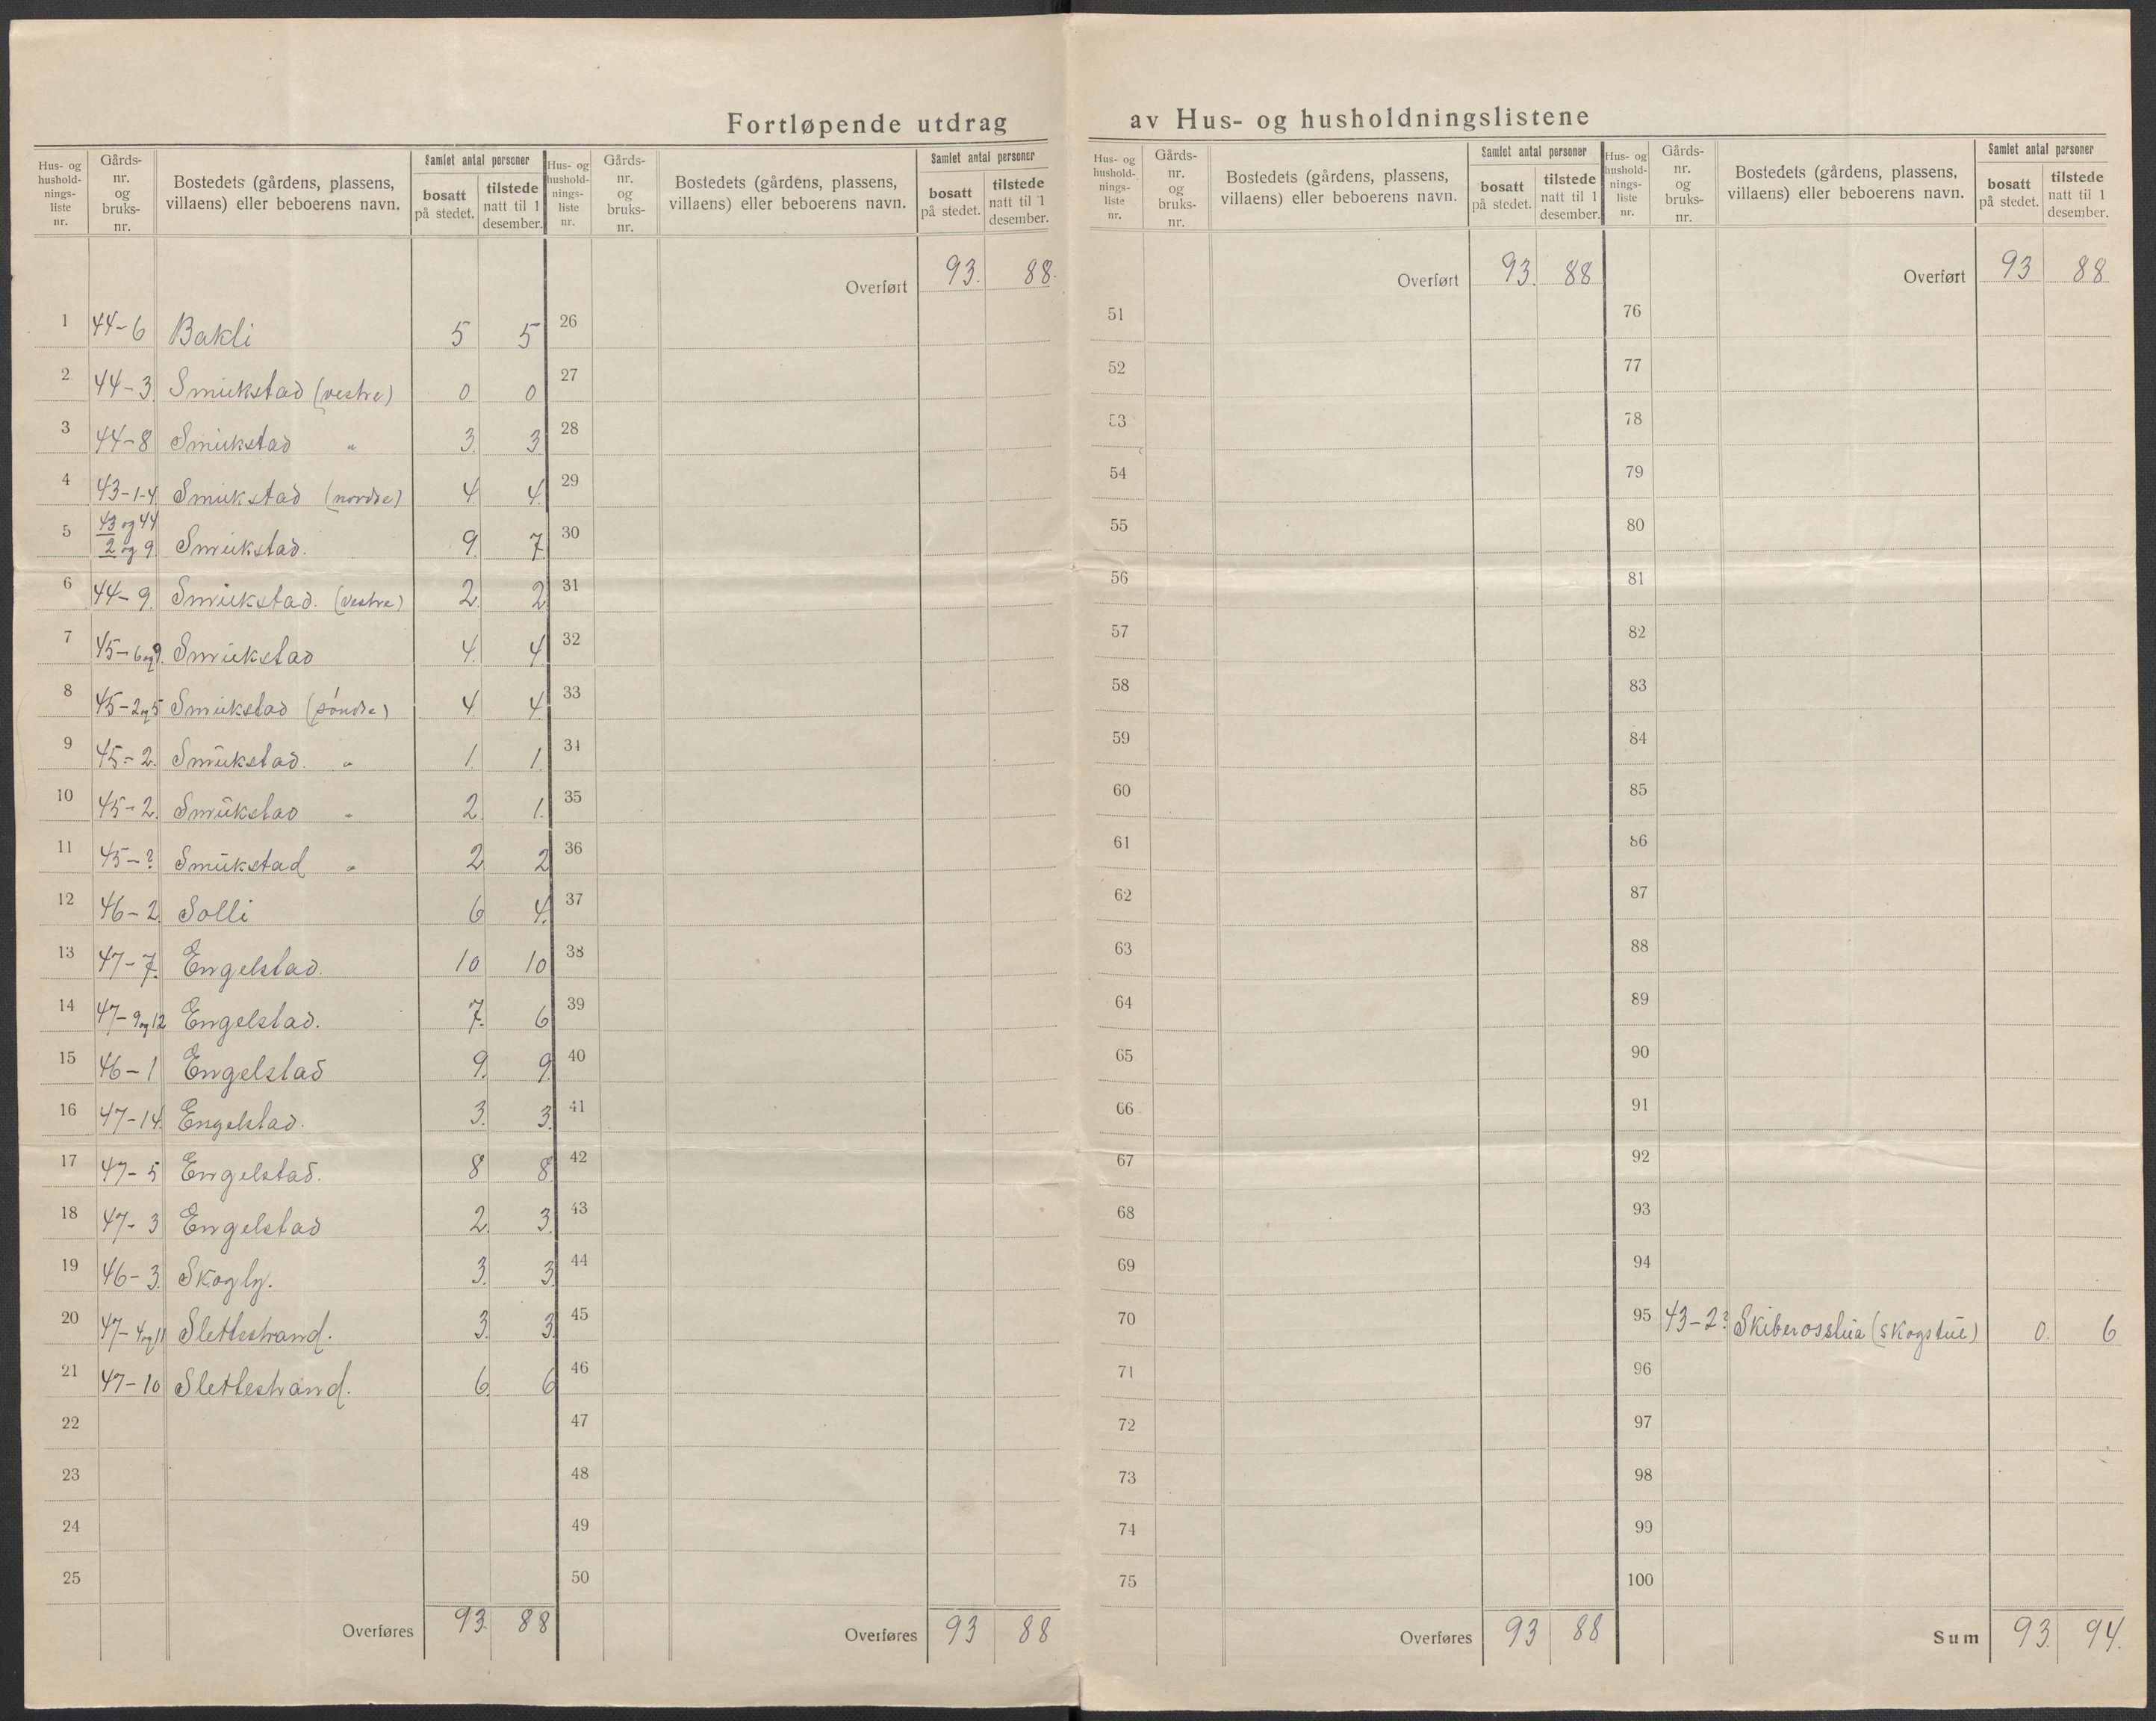 Fortløpende utdrag av Hus- og husholdningslistene
Hus- og hushold-nings-liste nr. | Gårds-nr. og bruks-nr. | Bostedets (gårdens, plassens, villaens) eller beboerens navn. | Samlet antal personer | bosatt på stedet. | tilstede natt til 1 desember.
1 44-6 Bakli 5 5
2 44-3 Smukstad (vestre) 0 0
3 44-8 Smukstad " 3 3
4 43-1-4 Smukstad (nordre) 4 4
5 43 og 44 2 og 9 Smukstad. 9 7
6 44-9 Smukstad. (vestre) 2 2
7 45-6og9. Smukstad 4 4
8 45-2og5 Smukstad (søndre) 4 4
9 45-2. Smukstad. " 1 1
10 45-2. Smukstad " 2 1
11 45-? Smukstad " 2 2
12 46-2. Solli 6 4.
13 47-7. Engelstad. 10 10
14 47-9og12 Engelstad. 7. 6
15 46-1 Engelstad 9. 9
16 47-14. Engelstad. 3. 3.
17 47-5 Engelstad. 8 8
18 47-3 Engelstad 2. 3.
19 46-3. Skogly. 3. 3
20 47-4og11 Slettestrand. 3. 3
21 47-10 Slettestrand. 6. 6
22
23
24
25
Overføres 93. 88
Hus- og hushold-nings-liste nr. | Gårds-nr. og bruks-nr. | Bostedets (gårdens, plassens, villaens) eller beboerens navn. | Samlet antal personer | bosatt på stedet. | tilstede natt til 1 desember.
Overført 93. 88.
26
27
28
29
30
31
32
33
34
35
36
37
38
39
40
41
42
43
44
45
46
47
48
49
50
Overføres 93 88
Hus- og hushold-nings-liste nr. | Gårds-nr. og bruks-nr. | Bostedets (gårdens, plassens, villaens) eller beboerens navn. | Samlet antal personer | bosatt på stedet. | tilstede natt til 1 desember.
Overført 93. 88
51
52
53
54
55
56
57
58
59
60
61
62
63
64
65
66
67
68
69
70
71
72
73
74
75
Overføres 93 88
Hus- og hushold-nings-liste nr. | Gårds-nr. og bruks-nr. | Bostedets (gårdens, plassens, villaens) eller beboerens navn. | Samlet antal personer | bosatt på stedet. | tilstede natt til 1 desember.
Overført 93 88
76
77
78
79
80
81
82
83
84
85
86
87
88
89
90
91
92
93
94
95 43-2? Skiberosstua (skogstue) 0. 6
96
97
98
99
100
Sum 93. 94.